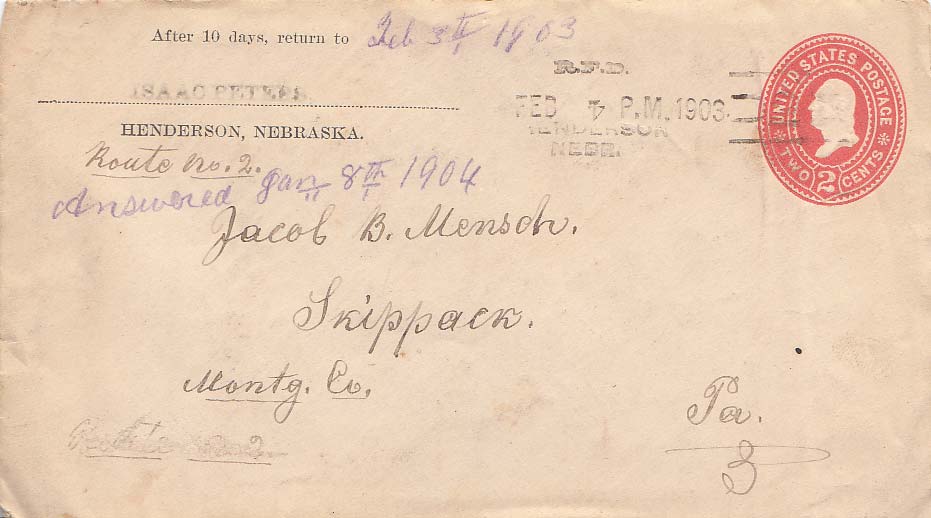 After 10 days, return to Feb 3th 1903
ISAAC PETERS
HENDERSON, NEBRASKA.
Route No. 2.
Answered Jan 8th 1904
R.F.D.
FEB 4 P.M. 1903.
HENDERSON
NEBR.
UNITED STATES POSTAGE
TWO 2 CENTS
Jacob B. Mensch.
Skippack.
Montg. Co.
Pa.
3